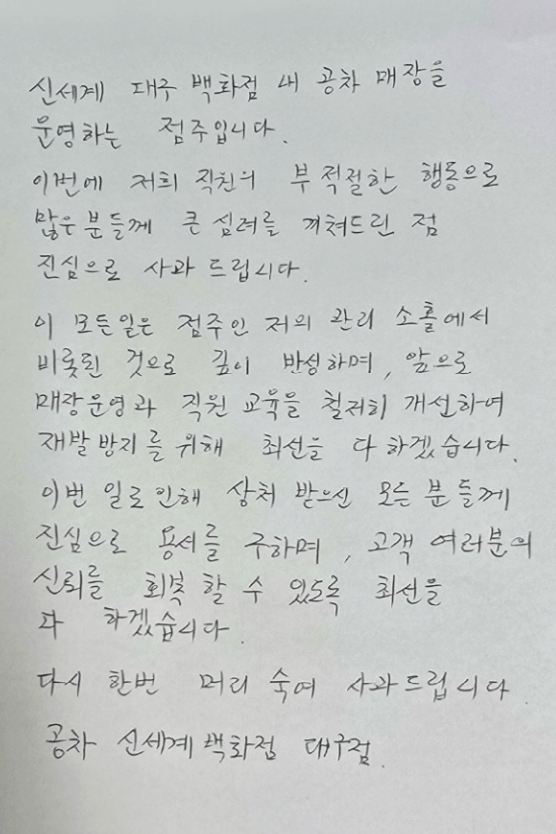 신세계 대구 백화점 내 공차 매장을
운영하는 점주입니다.
이번에 저희 직원의 부적절한 행동으로
많은분들께 큰 심려를 끼쳐드린 점
진심으로 사과 드립니다.
이 모든일은 점주인 저의 관리 소홀에서
비롯된 것으로 깊이 반성하며, 앞으로
매장운영과 직원 교육을 철저히 개선하여
재발방지를 위해 최선을 다하겠습니다.
이번 일로인해 상처 받으신 모든 분들께
진심으로 용서를 구하며, 고객 여러분의
신뢰를 회복 할 수 있도록 최선을
다 하겠습니다.
다시 한번 머리 숙여 사과드립니다
공차 신세계백화점 대구점.